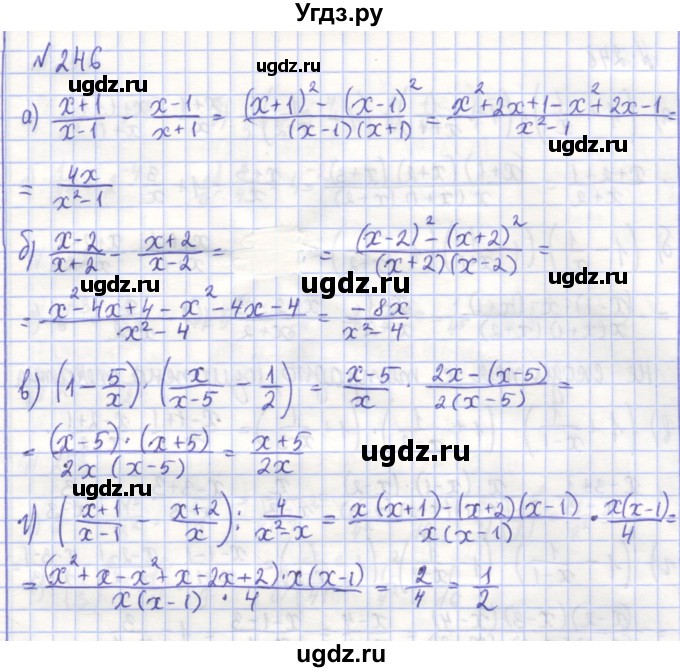 Угдз.ру
№ 246
ugdz.ru
а) (x+1)/(x-1) - (x-1)/(x+1) = ((x+1)² - (x-1)²)/((x-1)(x+1)) = (x²+2x+1-x²+2x-1)/(x²-1) =
ugdz.ru
ugdz.ru
= 4x/(x²-1)
б) (x-2)/(x+2) - (x+2)/(x-2) = = ((x-2)² - (x+2)²)/((x+2)(x-2)) =
ugdz.ru
ugdz.ru
= (x²-4x+4-x²-4x-4)/(x²-4) = (-8x)/(x²-4)
в) (1 - 5/x) · (x/(x-5) - 1/2) = (x-5)/x · (2x-(x-5))/(2(x-5)) =
ugdz.ru
= ((x-5)·(x+5))/(2x (x-5)) = (x+5)/(2x)
ugdz.ru
ugdz.ru
г) ((x+1)/(x-1) - (x+2)/x) : 4/(x²-x) = (x(x+1)-(x+2)(x-1))/(x(x-1)) · (x(x-1))/4 =
ugdz.ru
= ((x²+x-x²+x-2x+2)·x(x-1))/(x(x-1) · 4) = 2/4 = 1/2
ugdz.ru
ugdz.ru